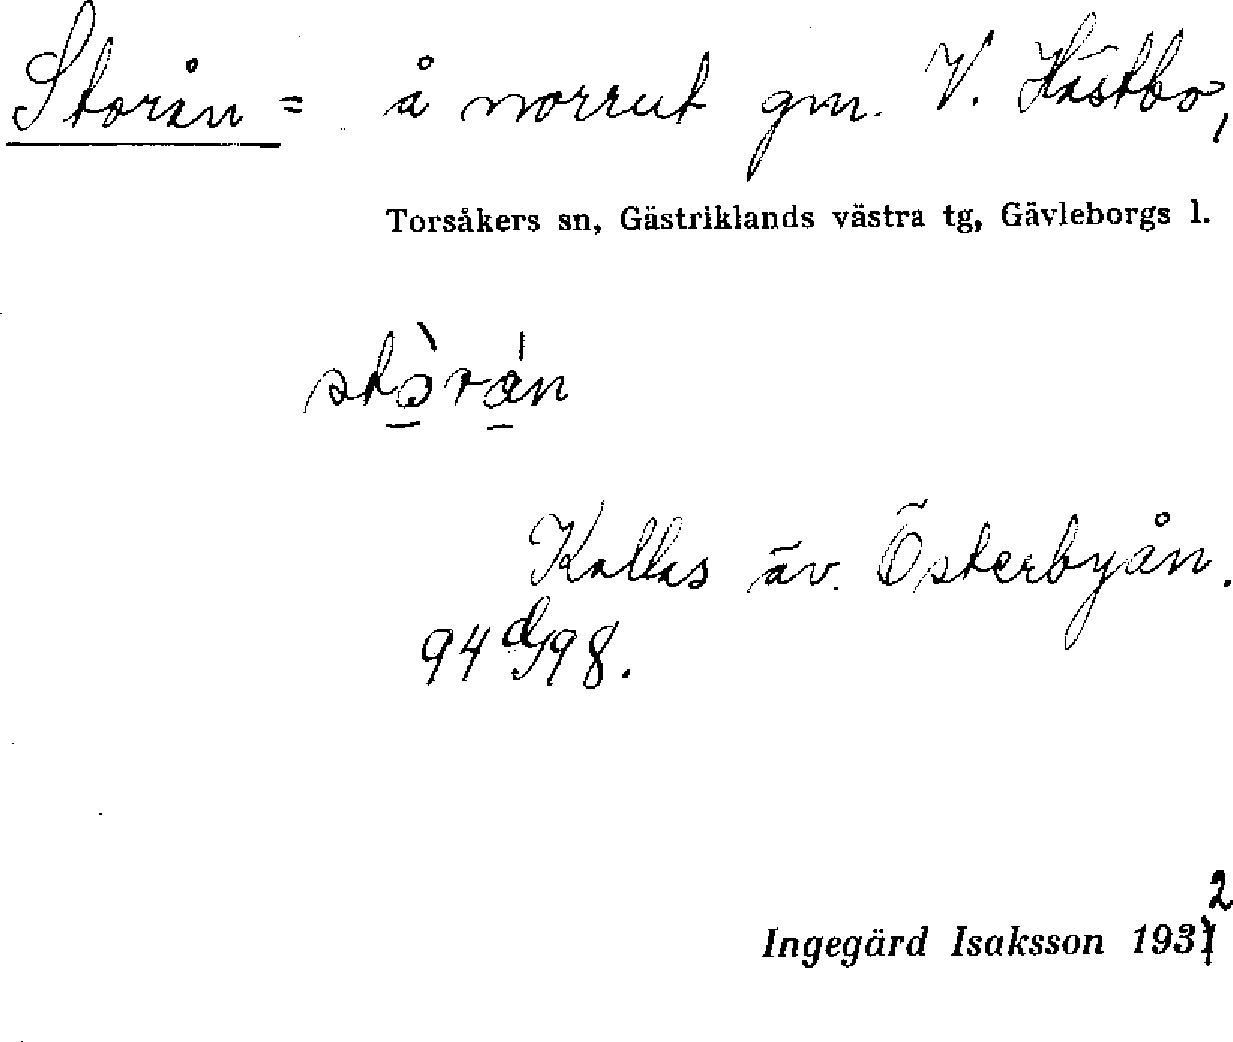 Storån = å norrut gm. V. Hästbo,
Torsåkers sn, Gästriklands västra tg, Gävleborgs l.
stòrán
Kallas äv. Österbyån.
94 d/98.
Ingegärd Isaksson 1932